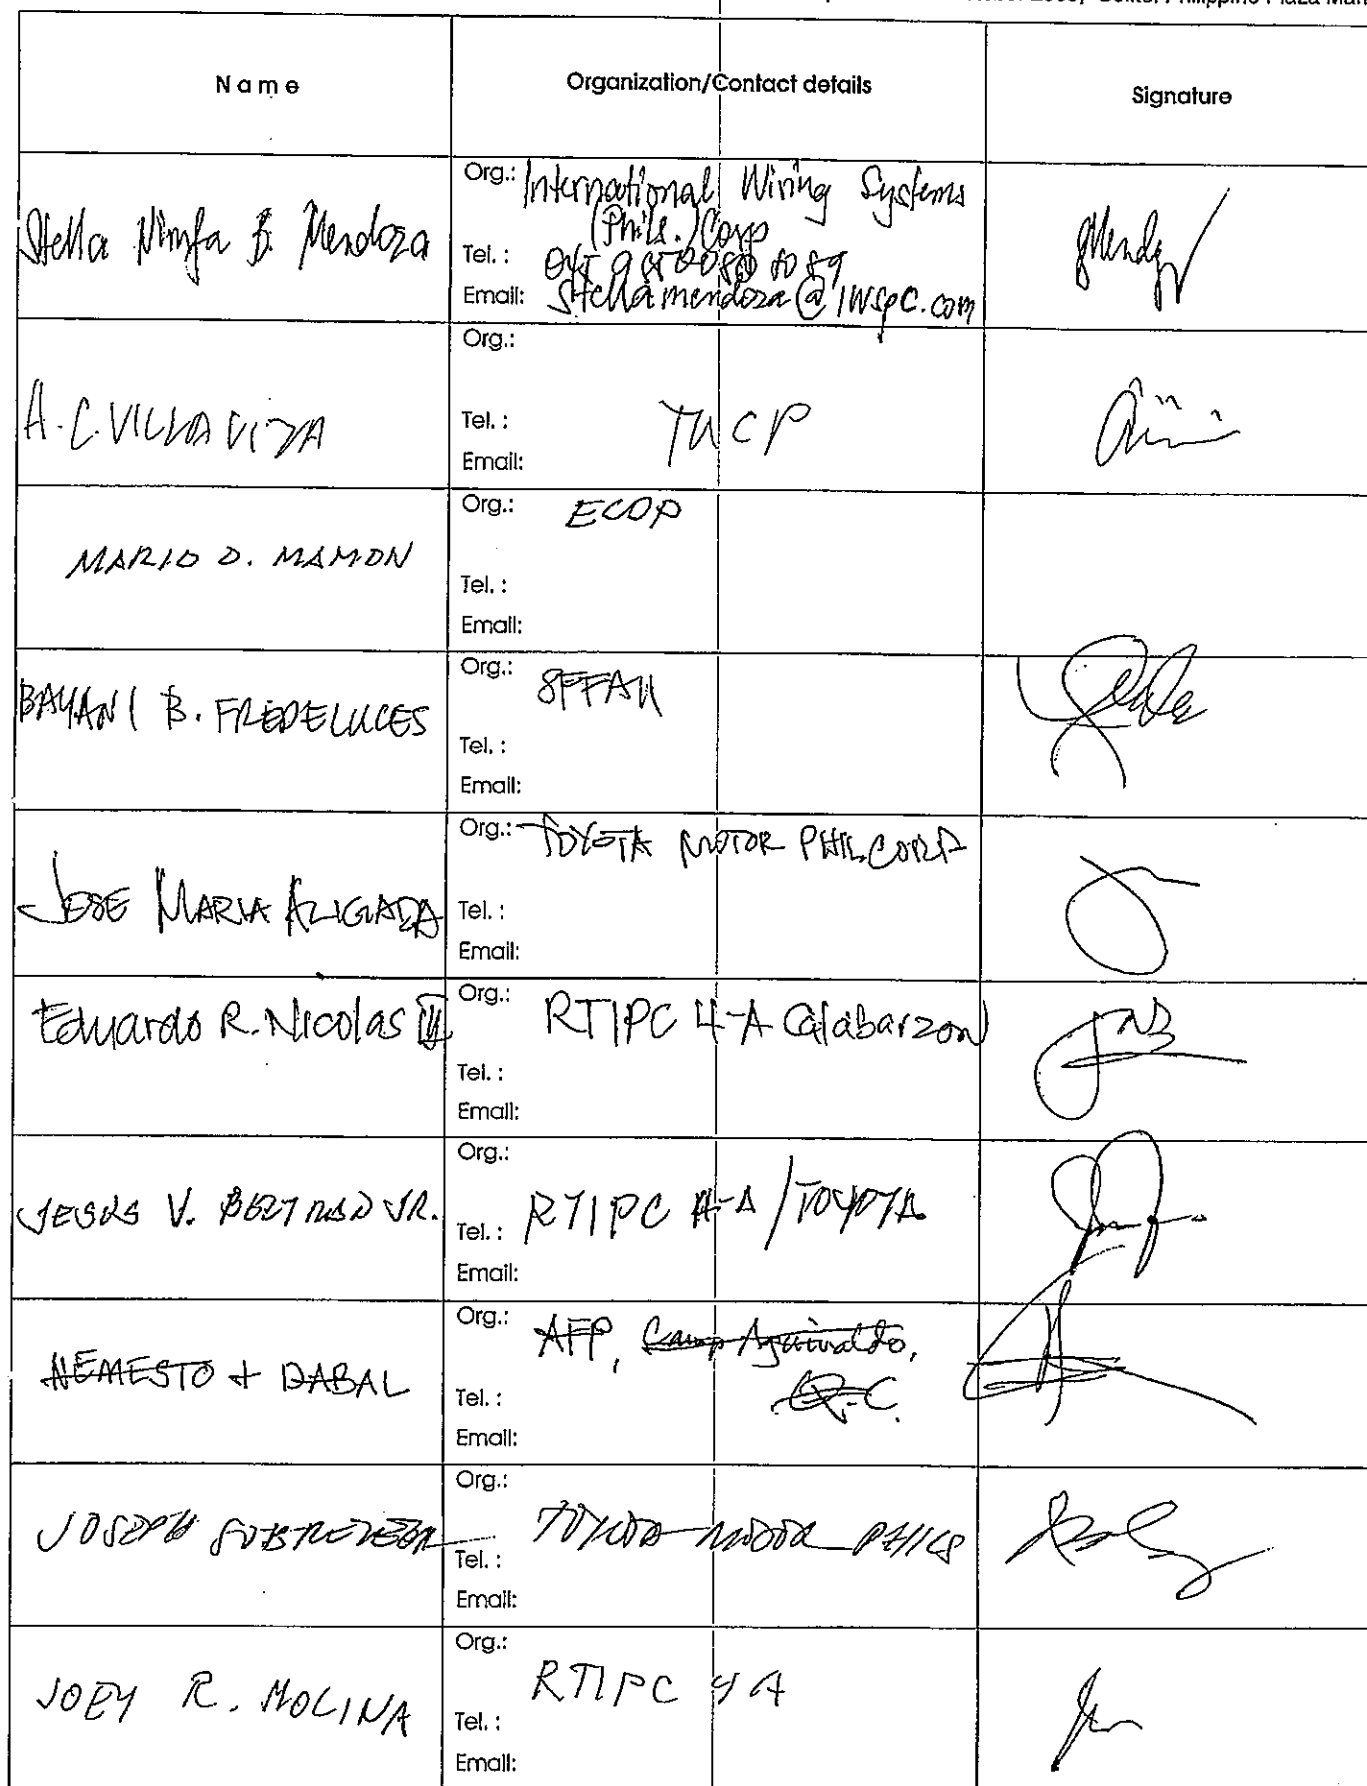 Philippine Plaza
Name Organization/Contact details Signature
Stella Nimfa B. Mendoza
Org.: International Wiring Systems
(Phils.) Corp
Tel. :
Email: stellamendoza@iwspc.com
A.C. VILLAVIZA
Org.:
Tel. : TUCP
Email:
MARIO D. MAMON
Org.: ECOP
Tel. :
Email:
BAYANI B. FREDELUCES
Org.: SFFAU
Tel. :
Email:
JOSE MARIA ALIGADA
Org.: TOYOTA MOTOR PHIL. CORP
Tel. :
Email:
Eduardo R. Nicolas
Org.: RTIPC 4-A Calabarzon
Tel. :
Email:
JESUS V. JR.
Org.:
Tel. : RTIPC 4-A /TOYOTA
Email:
NEMESTO DABAL
Org.: AFP, Camp Aguinaldo,
Q.C.
Tel. :
Email:
JOSEPH
Org.: TOYOTA MOTOR PHILS
Tel. :
Email:
JOEY R. MOLINA
Org.: RTIPC 4A
Tel. :
Email: